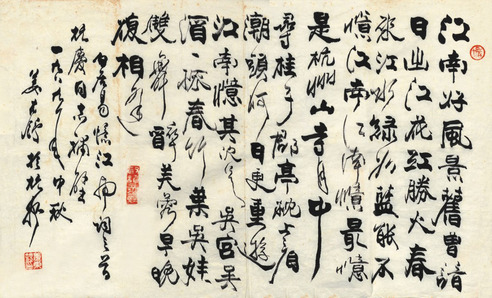 江南好風景舊曾諳
日出江花紅勝火春
來江水綠如藍能不
憶江南江南憶最憶
是杭州山寺月中
尋桂子郡亭枕上看
潮頭何日更重遊
江南憶其次憶吳宮吳
酒一杯春竹葉吳娃
雙舞醉芙蓉早晚
復相逢
白居易憶江南詞三首
慶同志補壁
一九八九年中秋